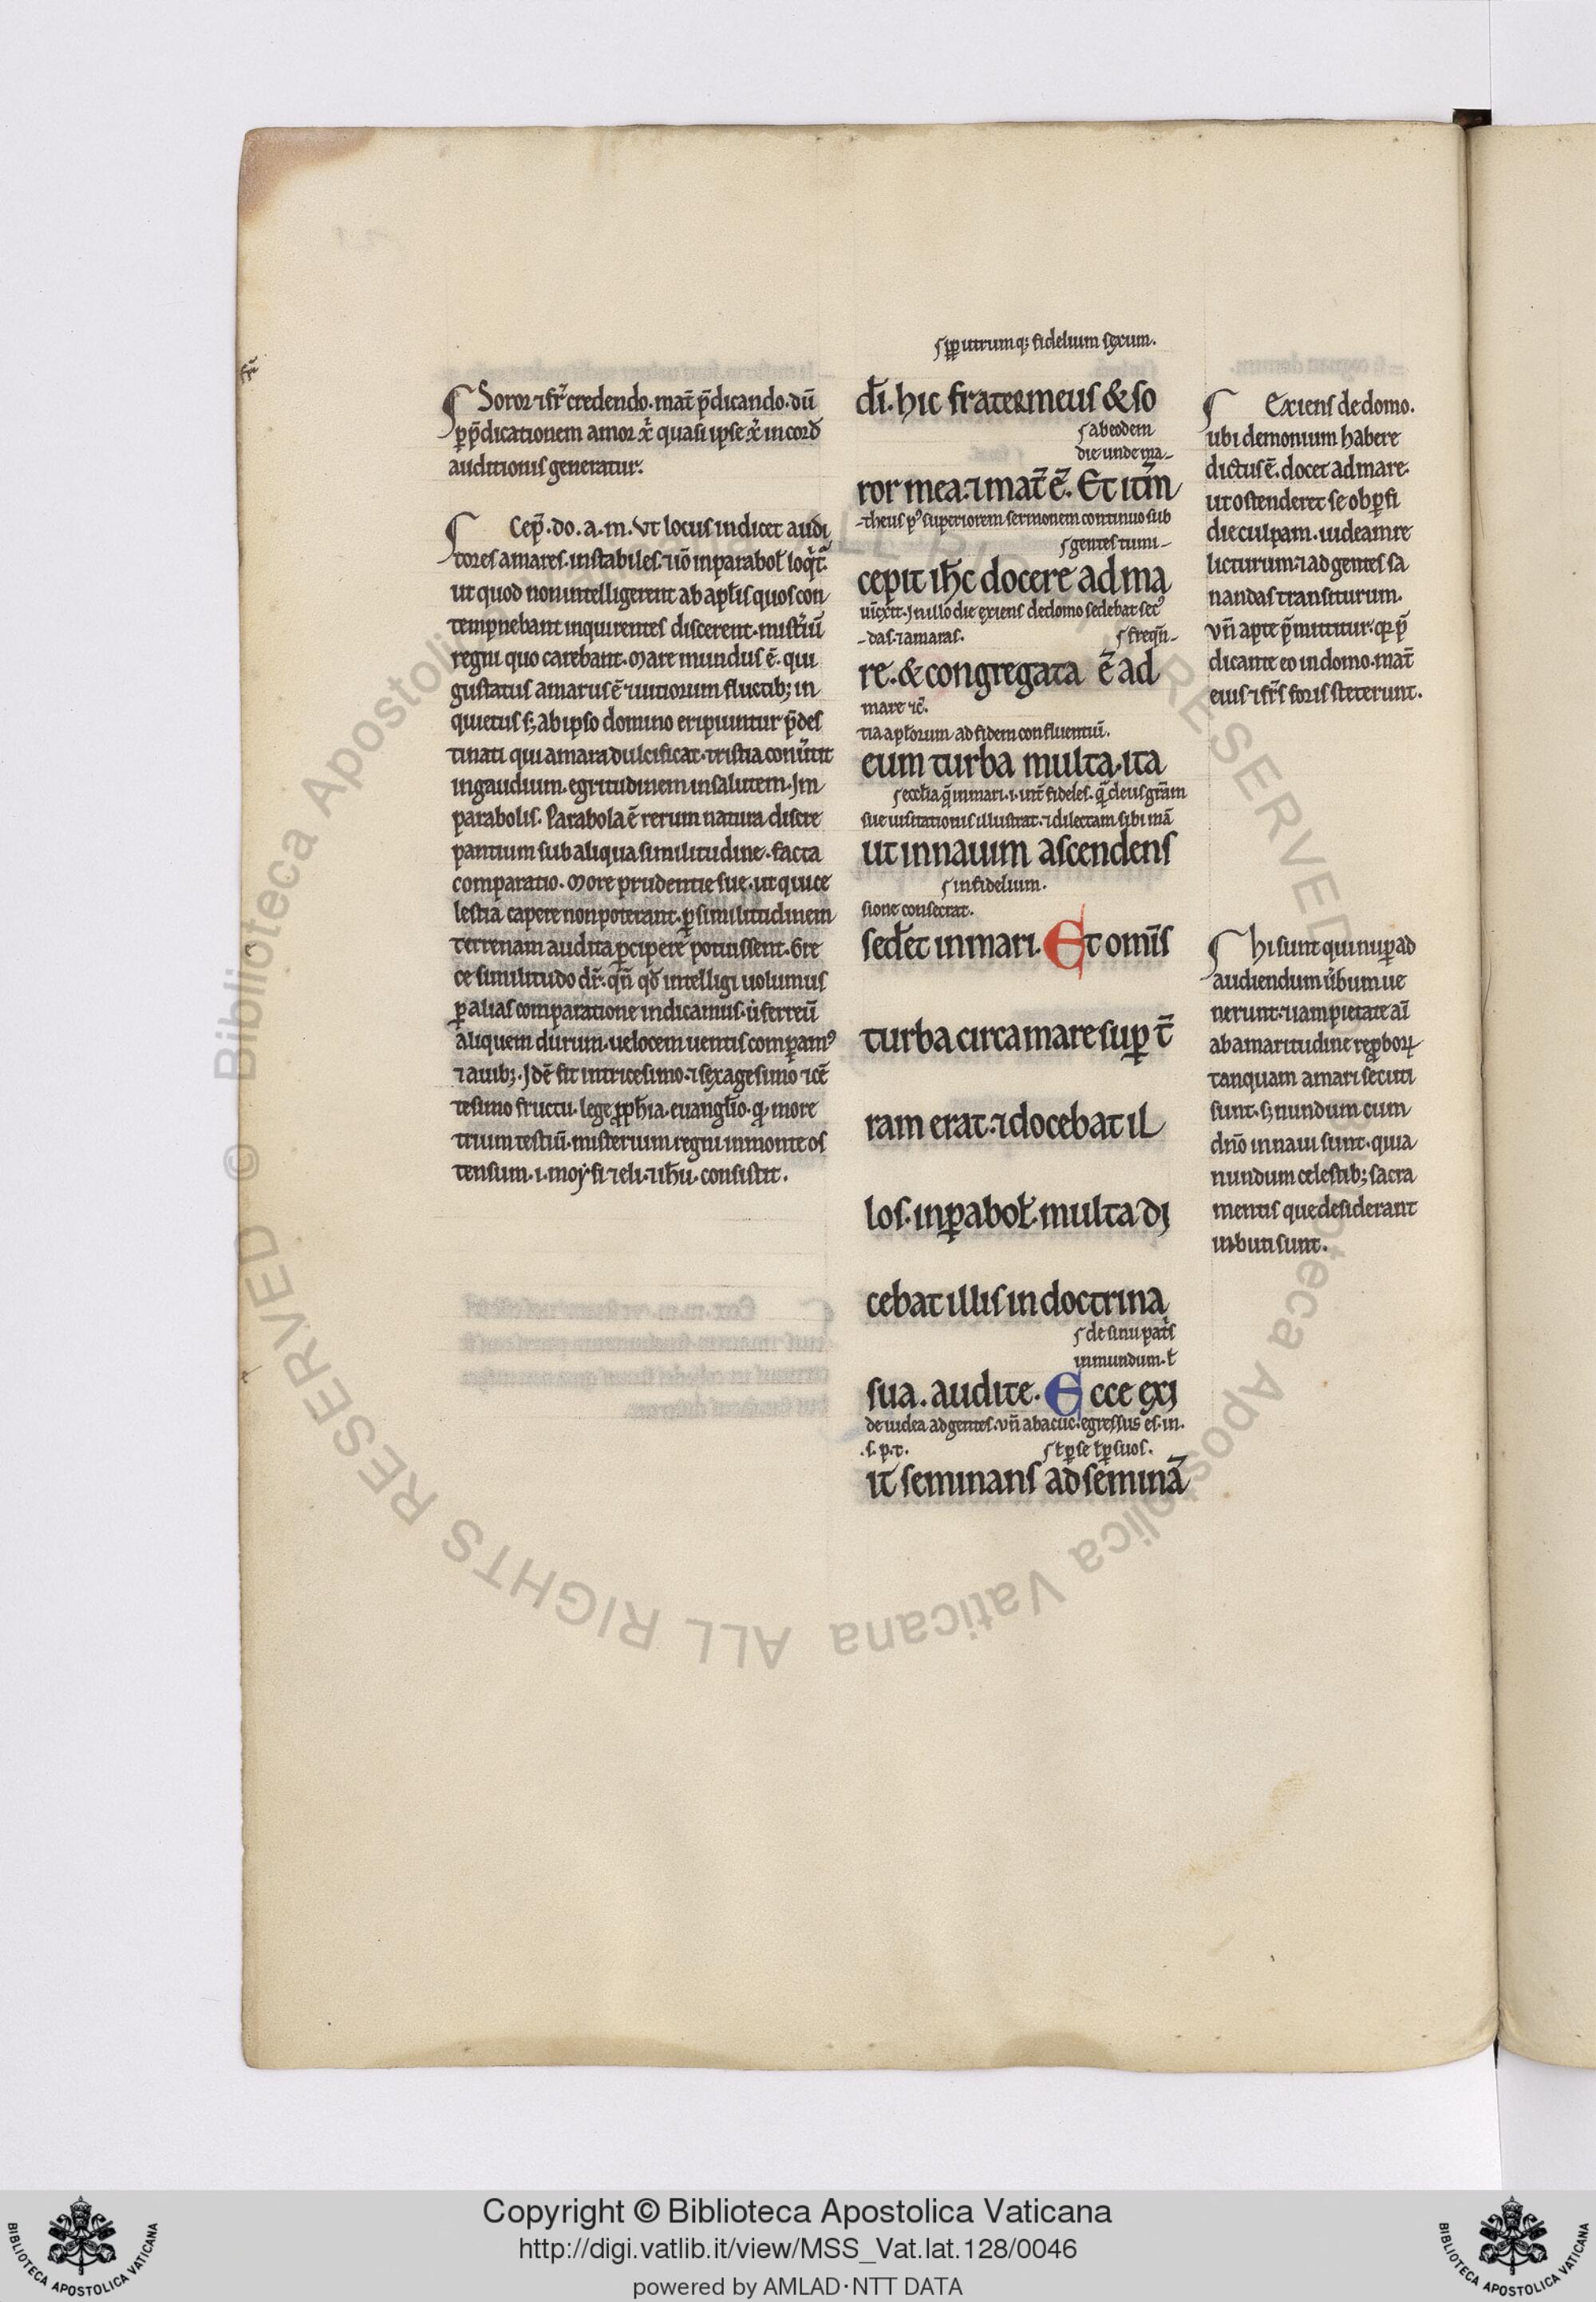 Soror ⁊ fr̄ credendo. mat̄ p̄dicando. dū
ꝑ p̄dicationem amor x̄ quasi ipse x̄ in cord̄
auditoris generatur.
Cep̄. do. a. m. Vt locus indicet audi
tores amares. instabiles. ⁊ iō in parabol̄ loq̄t̄.
ut quod non intelligerent ab apl̄is quos con
tempnebant inquirentes discerent. mist̄iū
regni quo carebant. Mare mundus ē. qui
gustatus amarus ē ⁊ uitiorum fluctib; in
quietus s; ab ipso domino eripiuntur p̄des
tinati qui amara dulcificat. tristia conūtit
in gaudium. egritudinem in salutem. Jn
parabolis. Parabola ē rerum natura discre
pantium sub aliqua similitudine. facta
comparatio. More prudentie sue. ut qui ce
lestia capere non poterant. ꝑ similitudinem
terrenam audita ꝑcipere potuissent. Gre
ce similitudo dr̄. qn̄ qd̄ intelligi uolumus
ꝑ alias comparatione indicamus. ut ferreū
aliquem durum. uelocem uentis comparam⁹
⁊ auib;. Jdē fit in tricesimo. ⁊ sexagesimo ⁊ cē
tesimo fructu. lege ꝓph̄ia. euangl̄io. q; more
trium testiū. misterium regni in monte os
tensum. i. moysi ⁊ eli. ⁊ ih̄u. consistit.
utrumq; fidelium sexum.
di. hic frater meus & so
ab eodem
die unde ma-
ror mea. ⁊ mat̄ ē. Et it̄m
-theus p⁹ superiorem sermonem continuo sub
gentes tumi-
cepit ih̄c docere ad ma
Jn illo die exiens de domo sedebat sec⁹
-das. ⁊ amaras. freqn̄-
re. & congregata ē ad
mare ⁊c̄.
tia apl̄orum ad fidem confluentiū.
eum turba multa. ita
eccl̄ia q̄ in mari. i. int̄ fideles. q̄ deus gr̄am
sue uisitationis illustrat. ⁊ dilectam sibi mā
ut in nauim ascendens
infidelium.
sione consecrat.
sed̄et in mari. Et omīs
turba circa mare suꝑ t̄
ram erat. ⁊ docebat il
los. in ꝑabol̄. multa di
cebat illis in doctrina
de sinu pat̄s
in mundum. ł
sua. audite. Ecce exi
de iudea ad gentes. vn̄ abacuc. egressus es. in.
.s. p. t. ł ꝑ se ł ꝑ suos.
it seminans ad seminā
Exiens de domo.
ubi demonium habere
dictus ē. docet ad mare.
ut ostenderet se ob ꝑfi
die culpam. iudeam re
licturum. ⁊ ad gentes sa
nandas transiturum.
vn̄ apte p̄mittitur. qr p̄
dicante eo in domo. mat̄
eius ⁊ fr̄s foris steterunt.
Hi sunt qui nuꝑ ad
audiendum u̅bum ue
nerunt. ⁊ iam pietate aī
ab amaritudine reꝓboꝝ
tanquam a mari secuti
sunt. s; nundum cum
dn̄o in naui sunt. quia
nundum celestib; sacra
mentis que desiderant
imbuti sunt.
Copyright © Biblioteca Apostolica Vaticana
http://digi.vatlib.it/view/MSS_Vat.lat.128/0046
powered by AMLAD·NTT DATA
© Biblioteca Apostolica Vaticana ALL RIGHTS RESERVED
© Biblioteca Apostolica Vaticana ALL RIGHTS RESERVED
BIBLIOTECA APOSTOLICA VATICANA
BIBLIOTECA APOSTOLICA VATICANA